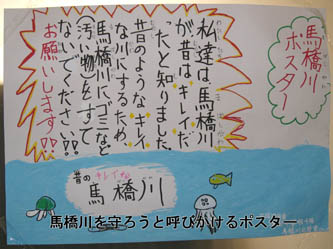 馬橋川
ポスター
私達は、馬橋川
が、昔はキレイだ
ったと知りました。
昔のようなキレイ
な川にするため、
馬橋川にゴミなど
(汚い物)をすて
ないでください!!
お願いします!!
昔の
キレイな
馬橋川
馬橋川を守ろうと呼びかけるポスター